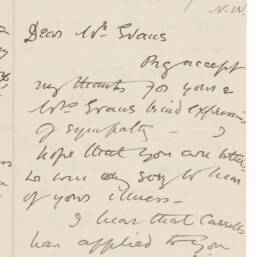 N.W.
Dear Mr. Evans
Pray accept
my thanks for your &
Mrs Evans kind expression
of sympathy – I
hope that you are better
we were very sorry to hear
of your illness –
I hear that Cassells
has applied to you